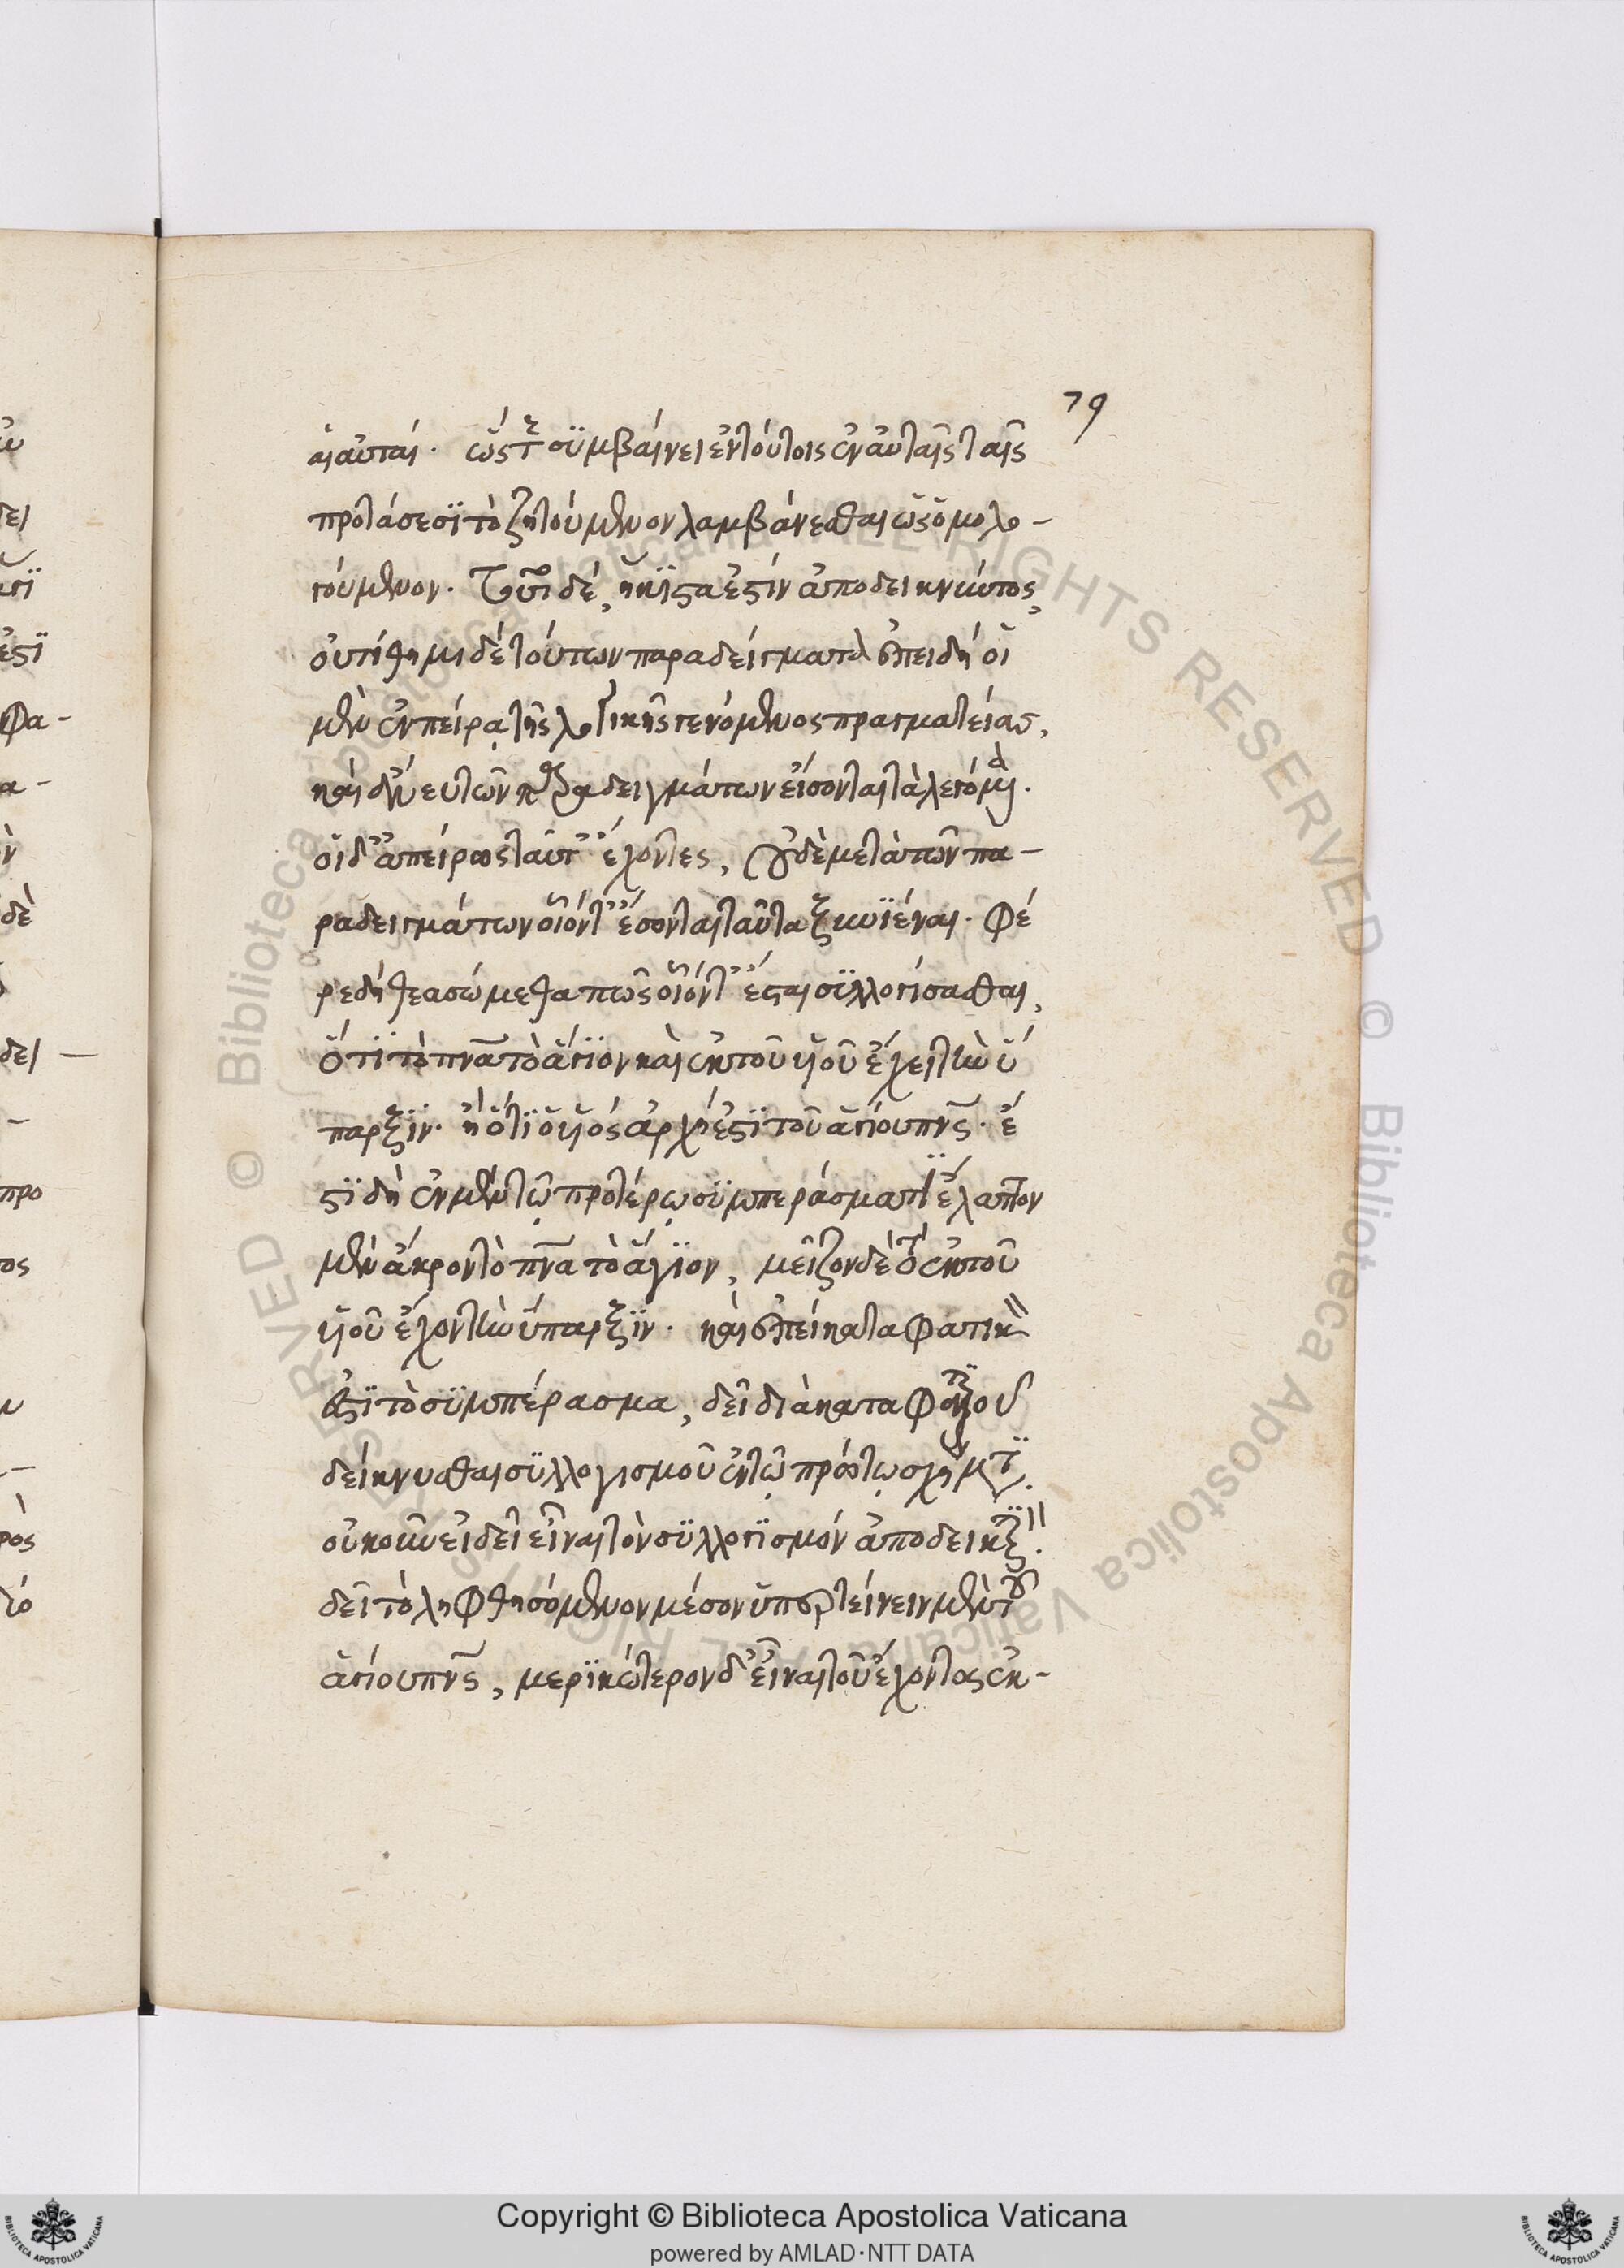 79
αἱ αὐταί. ὥστε συμβαίνει ἐν τούτοις ἐν αὐταῖς ταῖς
προτάσεσι τὸ ζητούμενον λαμβάνεσθαι ὡς ὁμολο-
γούμενον. τοῦτο δέ, ἥκιστα ἐστὶν ἀποδεικνύντος,
οὐ τίθημι δὲ τούτων παραδείγματα ἐπειδὴ οἱ
μὲν ἐν πείρᾳ τῆς λογικῆς γενόμενος πραγματείας,
καὶ ἄνευ τῶν παραδειγμάτων εἴσονται τὰ λεγόμενα.
οἱ δ' ἀπείρως ταύτ' ἔχοντες, οὐδὲ μετὰ τῶν πα-
ραδειγμάτων οἷόντ' ἔσονται ταῦτα ξυνϊέναι. φέ
ρε δὴ θεασώμεθα πῶς οἷόντ' ἔσται συλλογίσασθαι,
ὅτι τὸ πνα τὸ ἅγιον καὶ ἐκ τοῦ υἱοῦ ἔχει τὴν ὕ
παρξιν. ἢ ὅτι ὁ υἱός ἀρχή ἐστι τοῦ ἁγίου πνς. ἔ
στι δὴ ἐν μὲν τῷ προτέρῳ συμπεράσματι ἔλαττον
μὲν ἄκρον τὸ πνα τὸ ἅγιον, μεῖζον δὲ τὸ ἐκ τοῦ
υἱοῦ ἔχον τὴν ὕπαρξιν. καὶ ἐπεὶ καταφατικὸν
ἐστι τὸ συμπέρασμα, δεῖ διὰ καταφατικοῦ
δείκνυσθαι συλλογισμοῦ ἐν τῷ πρώτῳ σχήματι.
οὐκοῦν εἰ δεῖ εἶναι τὸν συλλογισμόν ἀποδεικτικὸν.
δεῖ τὸ ληφθησόμενον μέσον ὑπερτείνειν μὲν τοῦ
ἁγίου πνς, μερικώτερον δ' εἶναι τοῦ ἔχοντος ἐκ-
Copyright © Biblioteca Apostolica Vaticana
powered by AMLAD·NTT DATA